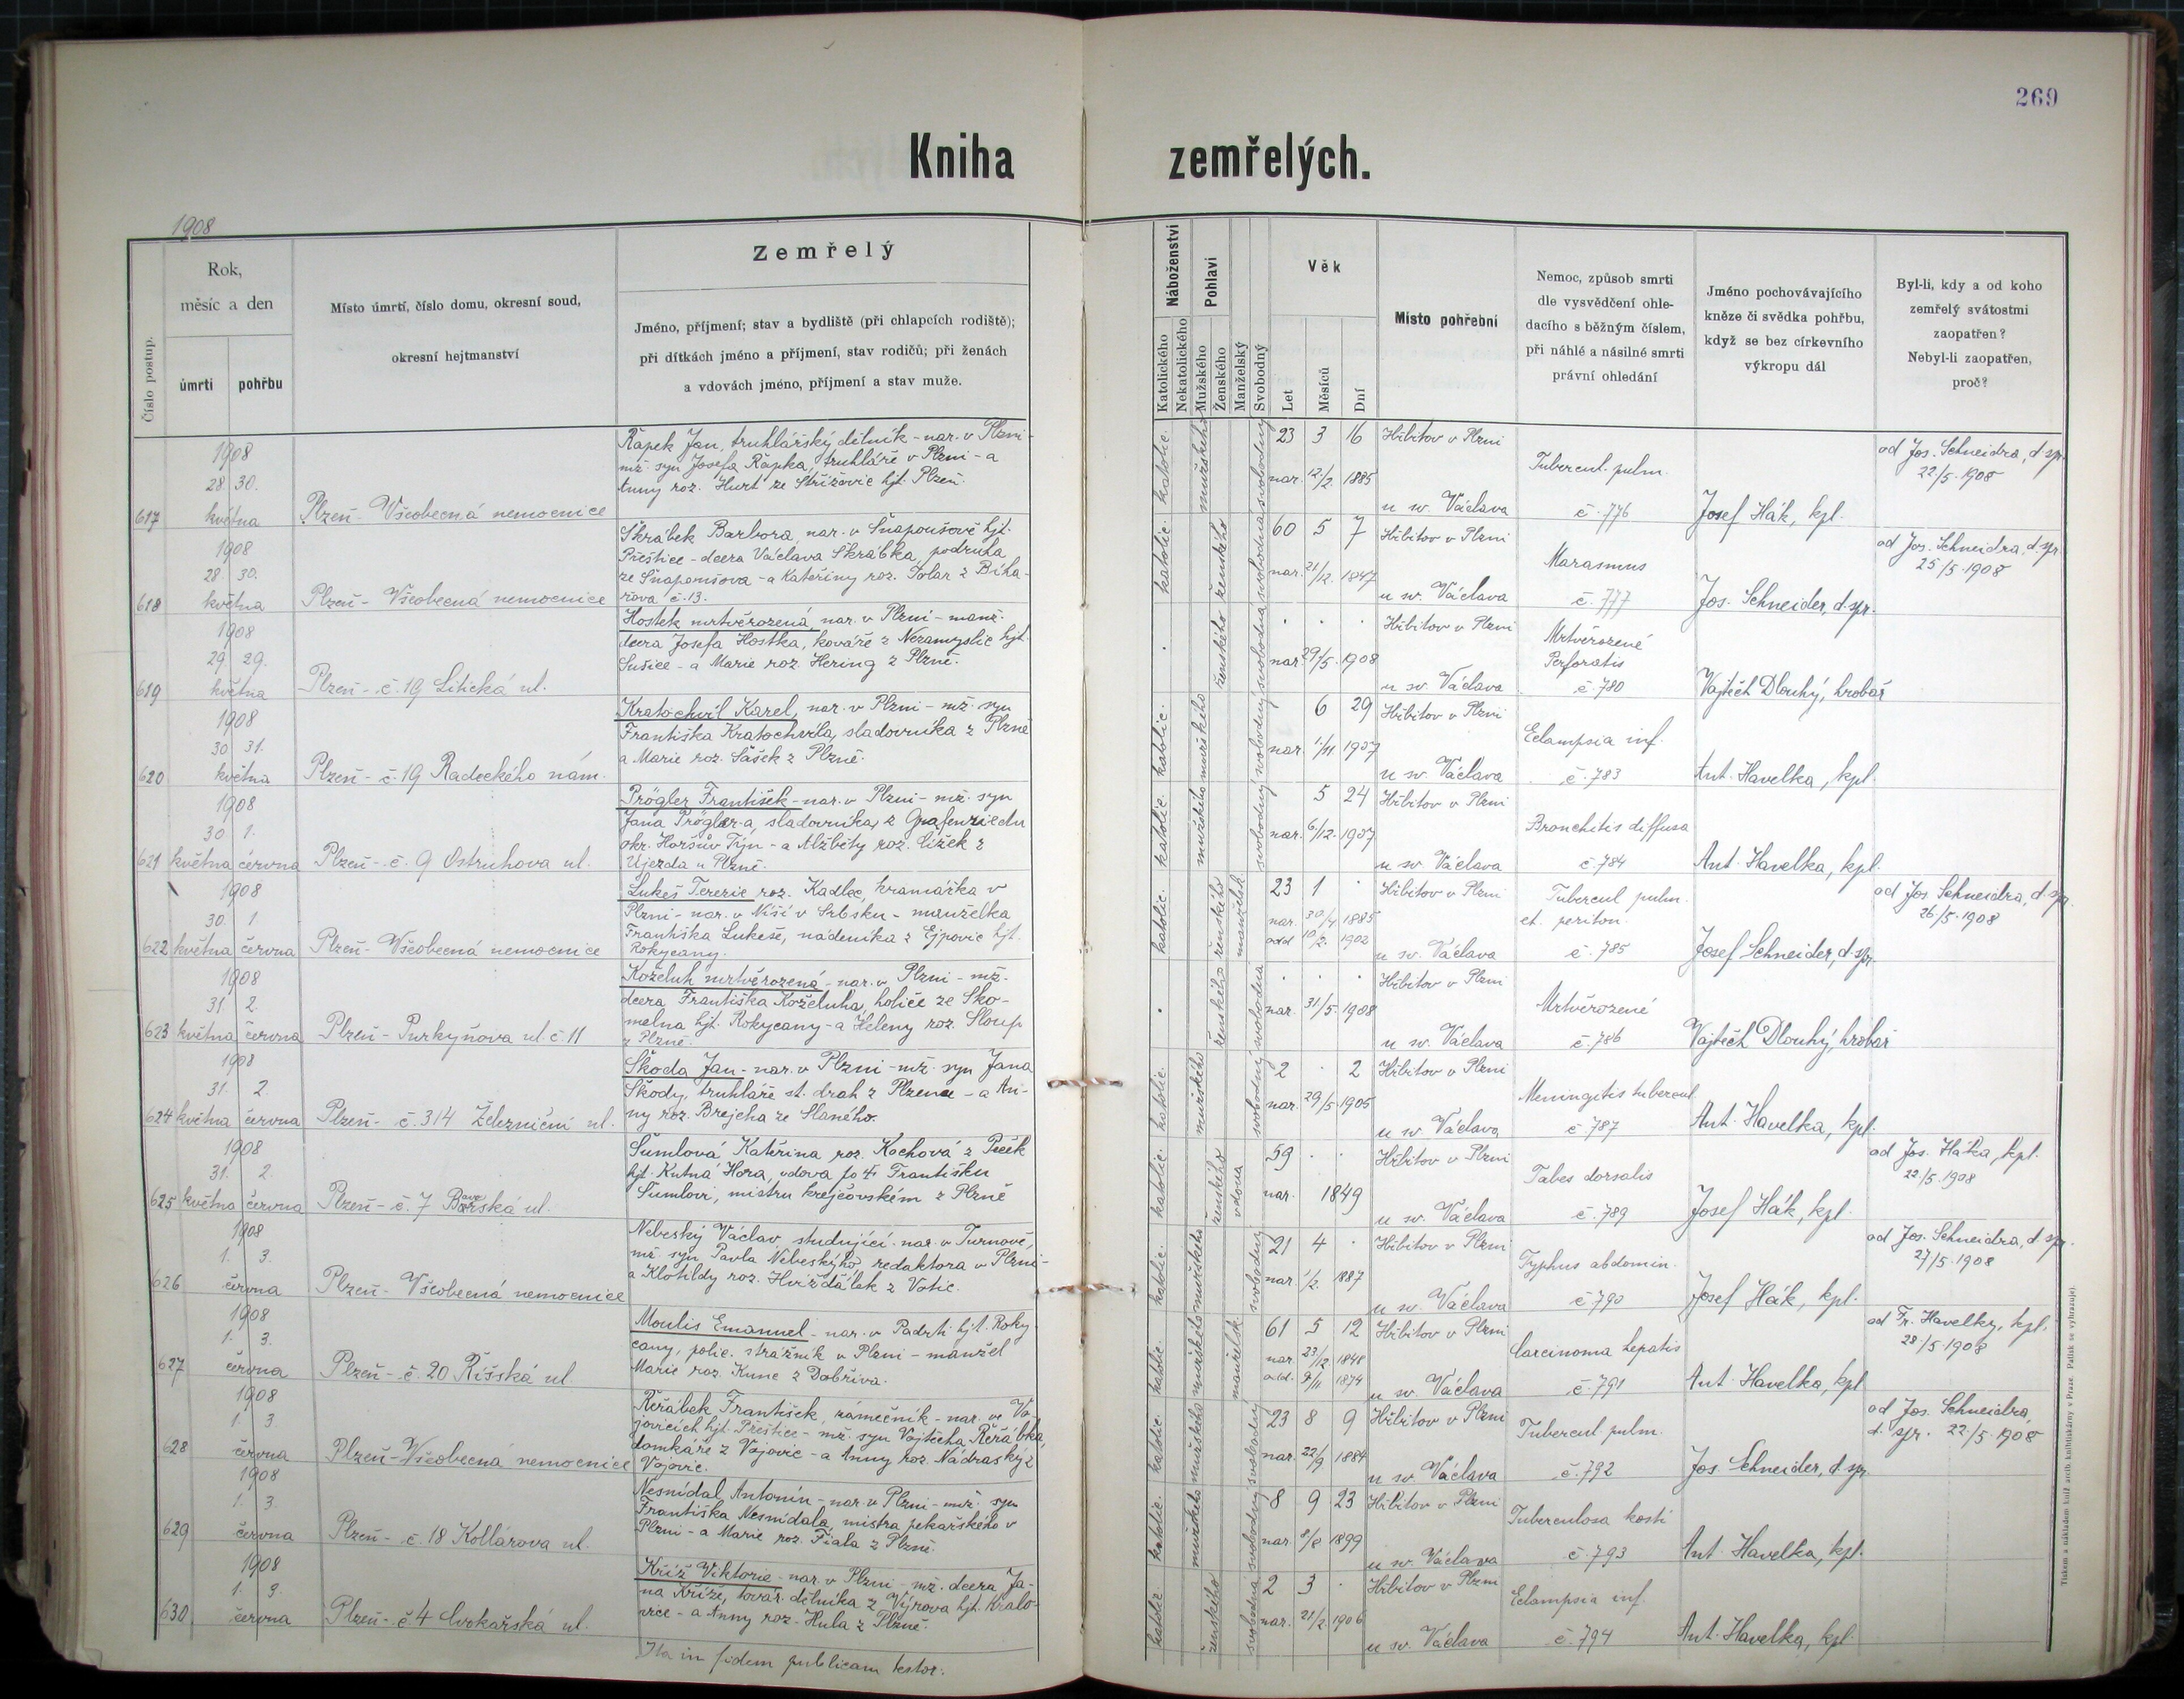 269
Kniha zemřelých.
1908
Číslo postup.
Rok,
měsíc a den
úmrtí
pohřbu
Místo úmrtí, číslo domu, okresní soud,
okresní hejtmanství
Zemřelý
Jméno, příjmení; stav a bydliště (při chlapcích rodiště);
při dítkách jméno a příjmení, stav rodičů; při ženách
a vdovách jméno, příjmení a stav muže.
Náboženství
Katolického
Nekatolického
Pohlaví
Mužského
Ženského
Manželský
Svobodný
Věk
Let
Měsíců
Dní
Místo pohřební
Nemoc, způsob smrti
dle vysvědčení ohle-
dacího s běžným číslem,
při náhlé a násilné smrti
právní ohledání
Jméno pochovávajícího
kněze či svědka pohřbu,
když se bez církevního
výkropu dál
Byl-li, kdy a od koho
zemřelý svátostmi
zaopatřen?
Nebyl-li zaopatřen,
proč?
617
1908
28. 30.
května
Plzeň - Všeobecná nemocnice
Řapek Jan, truhlářský dělník - nar. v Plzni -
mž. syn Josefa Řapka, truhláře v Plzni - a
Anny roz. Hurt ze Střížovic hjt. Plzeň.
katolic.
mužského
svobodný
23 3 16
nar. 12/2. 1885
Hřbitov v Plzni
u sv. Václava
Tubercul. pulm.
č. 776
Josef Hák, kpl.
od Jos. Schneidra, d. spr.
22./5. 1908
618
1908
28. 30.
května
Plzeň - Všeobecná nemocnice
Škrábek Barbora, nar. v Šnapoušově hjt.
Přeštice - dcera Václava Škrábka, podruha
ze Šnapoušova - a Kateřiny roz. Polar z Biha-
řova č. 13.
katolic.
ženského
svobodná
60 5 7
nar. 21/12. 1847
Hřbitov v Plzni
u sv. Václava
Marasmus
č. 777
Jos. Schneider, d. spr.
od Jos. Schneidra, d. spr.
25/5. 1908
619
1908
29. 29.
května
Plzeň - č. 19 Litická ul.
Hostek mrtvěrozená, nar. v Plzni - manž.
dcera Josefa Hostka, kováře z Nezamyslic hjt.
Sušice - a Marie roz. Hering z Plzně.
ženského
svobodná
nar. 29/5. 1908
Hřbitov v Plzni
u sv. Václava
Mrtvěrozené
Perforatis
č. 780
Vojtěch Dlouhý, hrobař
620
1908
30. 31.
května
Plzeň - č. 19 Radeckého nám.
Kratochvíl Karel, nar. v Plzni - mž. syn
Františka Kratochvíla, sladovníka z Plzně
a Marie roz. Šašek z Plzně.
katolic.
mužského
svobodný
6 29
nar. 1./11. 1907
Hřbitov v Plzni
u sv. Václava
Eclampsia inf.
č. 783
Ant. Havelka, kpl.
621
1908
30. 1.
května června
Plzeň - č. 9 Ostruhova ul.
Prögler František - nar. v Plzni - mž. syn
Jana Pröglera, sladovníka, z Grafenriedu
okr. Horšův Týn - a Alžběty roz. Čížek z
Újezda u Plzně.
katolic.
mužského
svobodný
5 24
nar. 6/12. 1907
Hřbitov v Plzni
u sv. Václava
Bronchitis diffusa
č. 784
Ant. Havelka, kpl.
622
1908
30. 1
května června
Plzeň - Všeobecná nemocnice
Lukeš Terezie roz. Kadlec, kramářka v
Plzni - nar. v Niši v Srbsku - manželka
Františka Lukeše, nádeníka z Ejpovic hjt.
Rokycany.
katolic.
ženského
manželsk.
23 1
nar. 30/4 1885
odd. 10/2. 1902
Hřbitov v Plzni
u sv. Václava
Tubercul pulm.
et. periton.
č. 785
Josef Schneider, d. spr.
od Jos. Schneidra, d. spr.
26/5. 1908
623
1908
31. 2.
května června
Plzeň - Purkyňova ul. č. 11
Koželuh mrtvěrozená - nar. v Plzni - mž.
dcera Františka Koželuha, holiče ze Sko-
melna hjt. Rokycany - a Heleny roz. Sloup
z Plzně.
ženského
svobodná
nar. 31/5. 1908
Hřbitov v Plzni
u sv. Václava
Mrtvěrozené
č. 786
Vojtěch Dlouhý, hrobař
624
1908
31. 2.
května června
Plzeň - č. 314 Železniční ul.
Škoda Jan - nar. v Plzni - mž. syn Jana
Škody, truhláře st. drah z Plzence - a An-
ny roz. Brejcha ze Slaného.
katolic.
mužského
svobodný
2 . 2
nar. 29/5. 1905
Hřbitov v Plzni
u sv. Václava
Meningitis tubercul.
č. 787
Ant. Havelka, kpl.
625
1908
31. 2.
května června
Plzeň - č. 7 ská ul.
Šumlová Kateřina roz. Kochová z Peček
hjt. Kutná Hora, vdova po † Františku
Šumlovi, mistru krejčovském z Plzně
katolic.
ženského
vdova
59
nar. 1849
Hřbitov v Plzni
u sv. Václava
Tabes dorsalis
č. 789
Josef Hák, kpl.
od Jos. Háka, kpl.
22/5. 1908
626
1908
1. 3.
června
Plzeň - Všeobecná nemocnice
Nebeský Václav, studující - nar. v Turnově,
mž. syn Pavla Nebeského, redaktora v Plzni -
a Klotildy roz. Hvižďálek z Votic.
katolic.
mužského
svobodný
21 4
nar. 1/2. 1887
Hřbitov v Plzni
u sv. Václava
Typhus abdomin.
č. 790
Josef Hák, kpl.
od Jos. Schneidra, d. spr.
27/5. 1908
627
1908
1. 3.
června
Plzeň - č. 20 Říšská ul.
Moulis Emanuel - nar. v Padrti hjt. Roky
cany, polic. strážník v Plzni - manžel
Marie roz. Kunc z Dobříva.
katolic.
mužského
manželsk.
61 5 12
nar. 23/12 1848
odd. 9/11 1874
Hřbitov v Plzni
u sv. Václava
Carcinoma hepatis
č. 791
Ant. Havelka, kpl.
od Fr. Havelky, kpl.
28/5. 1908
628
1908
1. 3
června
Plzeň - Všeobecná nemocnice
Řeřábek František, zámečník - nar. ve Vo-
jovicích hjt. Přeštice - mž. syn Vojtěcha Řeřábka,
domkáře z Vojovic - a Anny roz. Nádraský z
Vojovic.
katolic.
mužského
svobodný
23 8 9
nar. 22/9. 1884
Hřbitov v Plzni
u sv. Václava
Tubercul. pulm.
č. 792
Jos. Schneider, d. spr.
od Jos. Schneidra,
d. spr. 22./5. 1908
629
1908
1. 3.
června
Plzeň - č. 18 Kollárova ul.
Nesnídal Antonín - nar. v Plzni - mž. syn
Františka Nesnídala, mistra pekařského v
Plzni - a Marie roz. Fiala z Plzně.
katolic.
mužského
svobodný
8 9 23
nar. 8/8 1899
Hřbitov v Plzni
u sv. Václava
Tuberculosa kosti
č. 793
Ant. Havelka, kpl.
630
1908
1. 3.
června
Plzeň - č. 4 Cvokařská ul.
Kříž Viktorie - nar. v Plzni - mž. dcera Ja-
na Kříže, továr. dělníka z Výrova hjt. Kralo-
vice - a Anny roz. Hula z Plzně.
katolic.
ženského
svobodná
2 3
nar. 21/2 1906
Hřbitov v Plzni
u sv. Václava
Eclampsia inf.
č. 794
Ant. Havelka, kpl.
Ita in fidem publicam testor:
Tiskem a nákladem kníž. arcib. knihtiskárny v Praze. Patisk se vyhrazuje.